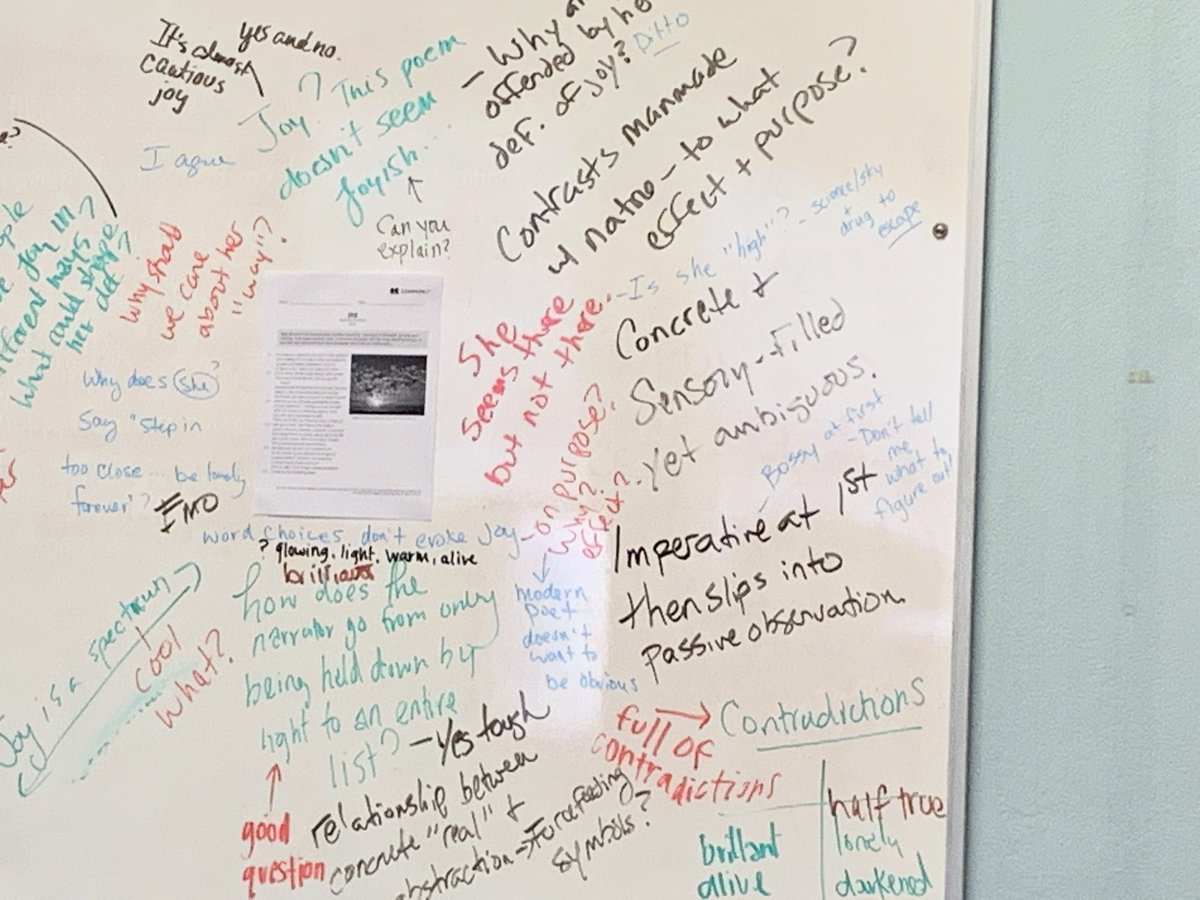 It's almost
cautious
joy
yes and no.
Joy? This poem
doesn't seem
joyish.
I agree
Can you
explain?
- Why
offended by
def. of joy?
Ditto
Contrasts manmade
w/ nature - to what
effect + purpose?
different ways
what could shape
her def?
Why should
we care
about her
"way"?
She
seems there
but not there.
- Is she "high"? - science/sky
+
drug to
escape
Concrete +
Sensory-filled
yet ambiguous.
Why does she
say "step in
too close... be lonely
forever"?
IMO
COMMONLIT
Joy
word choices don't evoke joy
- on purpose?
Why?
effect?
? glowing, light, warm, alive
brilliant
modern
poet
doesn't
want to
be obvious
Bossy at first
- Don't tell
me
what to
figure out!
Imperative at 1st
then slips into
passive observation.
Joy is a spectrum
cool
what?
how does the
narrator go from only
being held down by
light to an entire
list?
good
question
- Yes tough
relationship between
concrete "real" +
abstraction → Forcefeeding
symbols?
full of
contradictions
Contradictions
brilliant
alive
half true
lonely
darkened